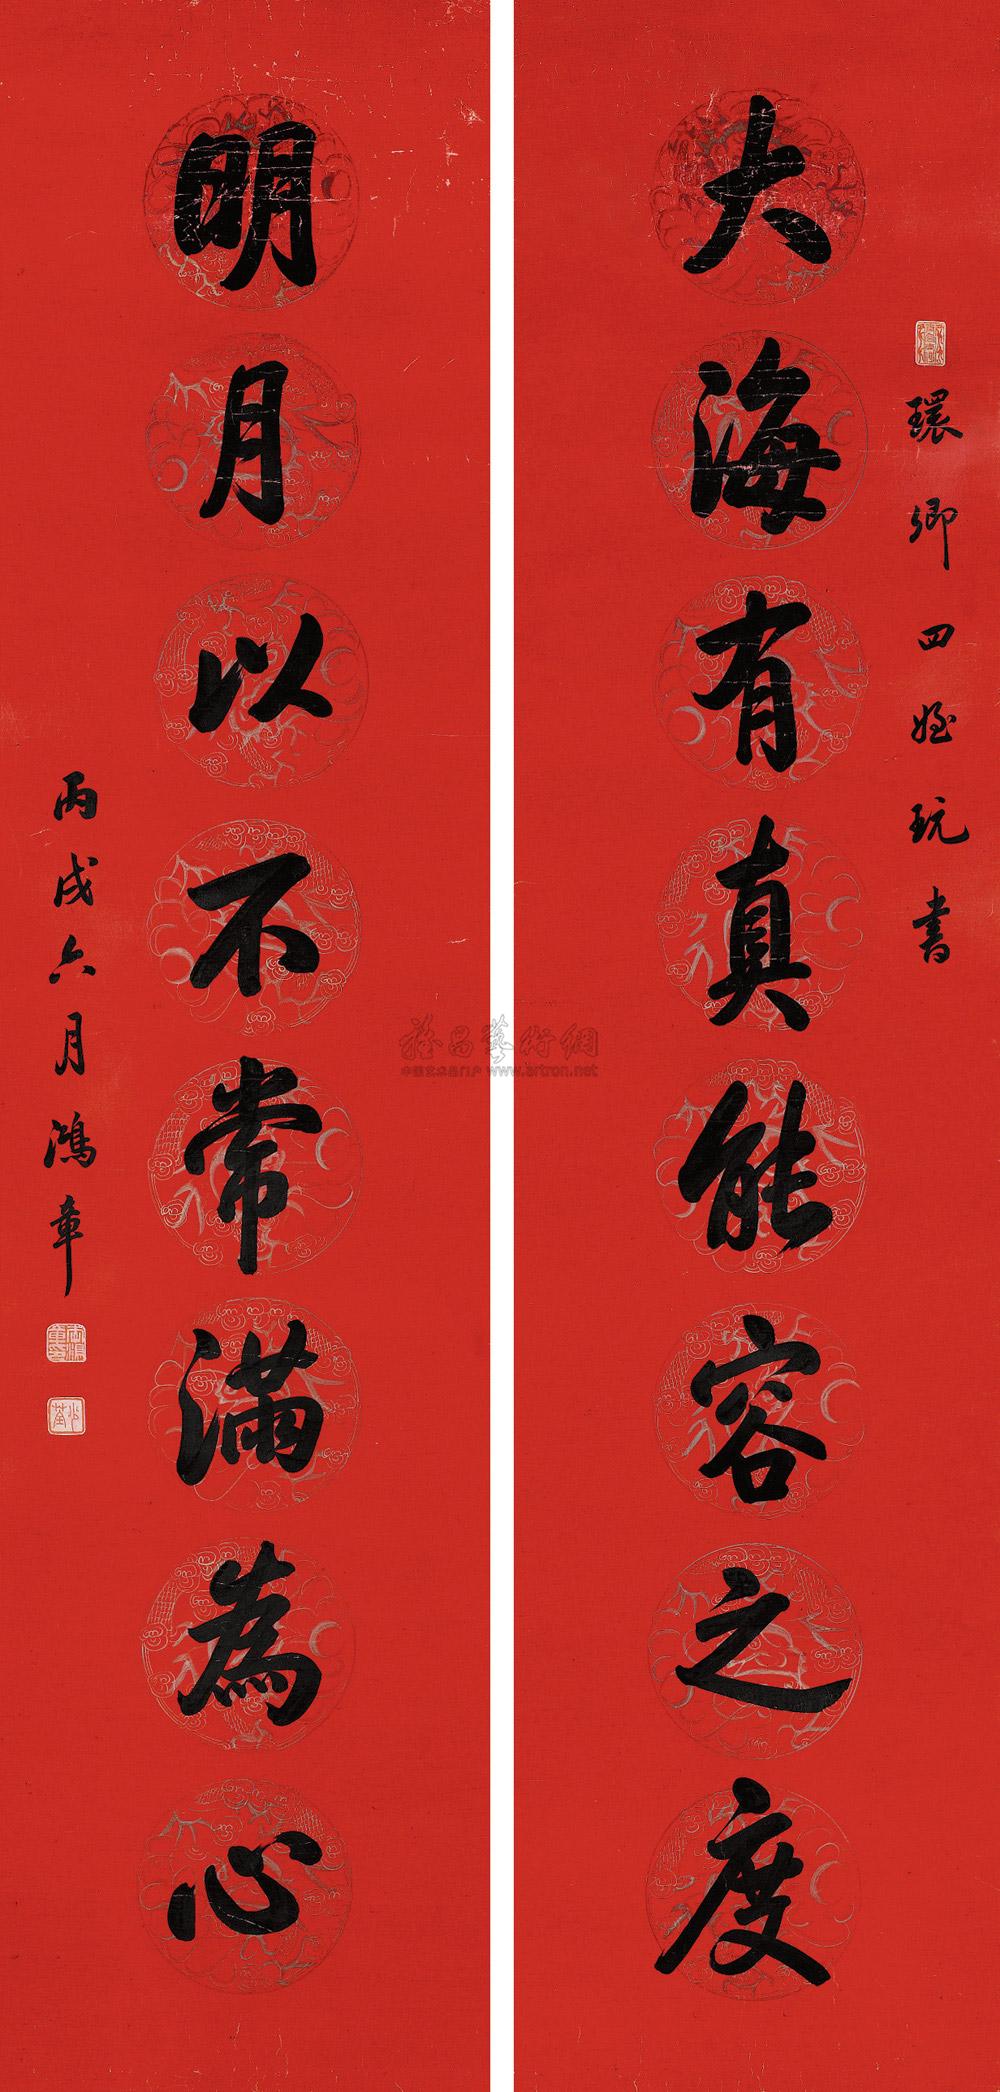 環卿四姪玩書
大海有真能容之度
明月以不常滿為心
丙戌六月鴻章
少荃
中国艺术品门户 www.artron.net